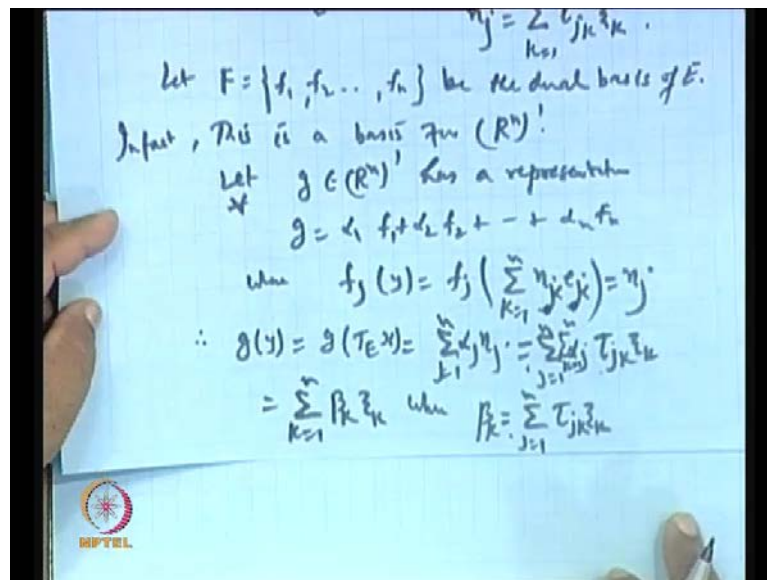 η_j = Σ_{k=1}^{n} τ_{jk} ξ_k .
Let F = {f_1, f_2 .. , f_n} be the dual basis of E.
Infact, This is a basis for (R^n)'.
Let g ∈ (R^n)' has a representation
g = α_1 f_1 + α_2 f_2 + - + α_n f_n
when f_j (y) = f_j ( Σ_{k=1}^{n} η_k e_k ) = η_j
∴ g(y) = g(T_E x) = Σ_{j=1}^{n} α_j η_j = Σ_{j=1}^{n} Σ_{k=1}^{n} α_j τ_{jk} ξ_k
= Σ_{k=1}^{n} β_k ξ_k when β_k = Σ_{j=1}^{n} τ_{jk} ξ_k
NPTEL